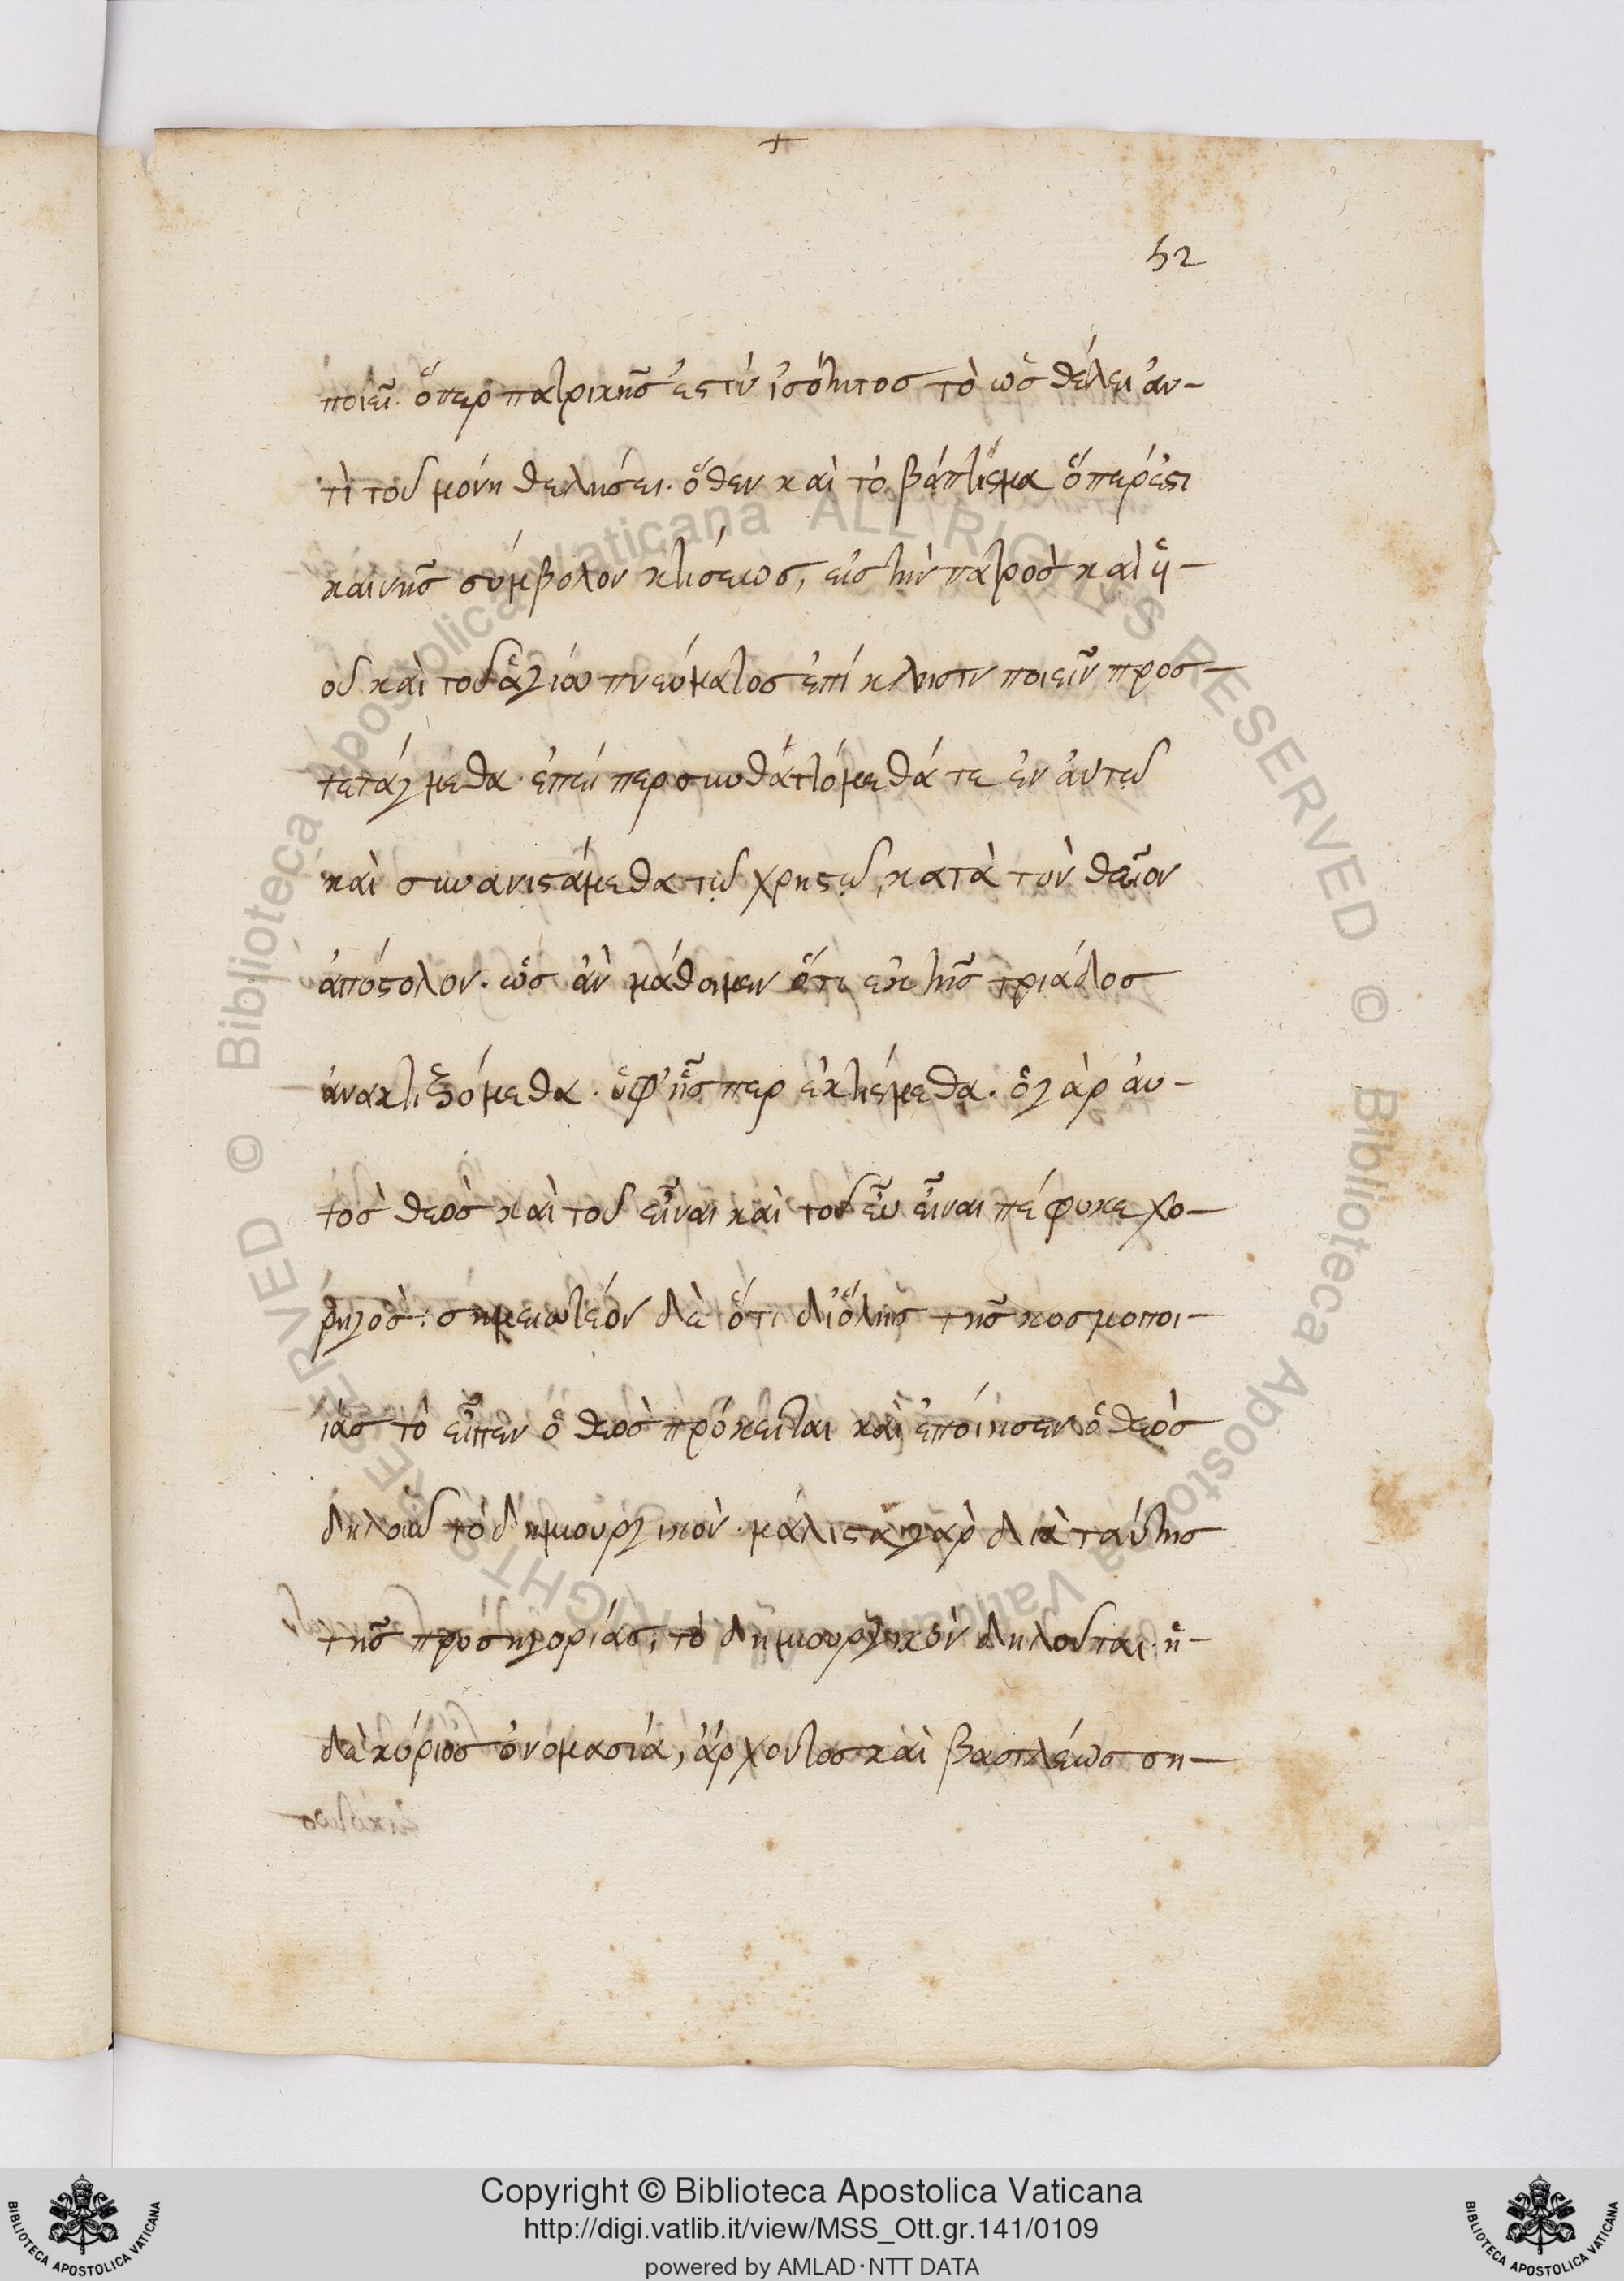 +
52
ποιεῖ. ὅπερ πατρικῆς ἐστὶν ἰσότητος τὸ ὡς θέλει ἀν-
τὶ τοῦ μόνη θελήσει. ὅθεν καὶ τὸ βάπτισμα ὅπερ ἐστι
καινῆς σύμβολον κτίσεως, εἰς τὴν πατρὸς καὶ ὑ-
οῦ καὶ τοῦ ἁγίου πνεύματος ἐπίκλησιν ποιεῖν προσ-
τετάγμεθα. ἐπείπερ συνθάπτόμεθά τε ἐν ἀυτῷ
καὶ συνανιστάμεθα τῷ χρηστῷ, κατὰ τὸν θεῖον
ἀπόστολον. ὡς ἂν μάθοιμεν ὅτι ἐκ τῆς τριάδος
ἀνακτιζόμεθα. ὑφ' ἧς περ ἐκτίσμεθα. ὁ γὰρ ἀυ-
τὸς θεὸς καὶ τοῦ εἶναι καὶ τοῦ εὖ εἶναι πέφυκε χο-
ρηγὸς: σημειωτέον δὲ ὅτι δι' ὅλης τῆς κοσμοποι-
ίας τὸ εἶπεν ὁ θεὸς πρόκειται καὶ ἐποίησεν ὁ θεὸς
δηλοῦν τὸ δημιουργικὸν. μάλιστα γὰρ διὰ ταύτης
τῆς προσηγορίας, τὸ δημιουργικὸν δηλοῦται. ἡ
δὲ κύριος ὀνομασία, ἄρχοντος καὶ βασιλέως ση-
Copyright © Biblioteca Apostolica Vaticana
http://digi.vatlib.it/view/MSS_Ott.gr.141/0109
powered by AMLAD·NTT DATA